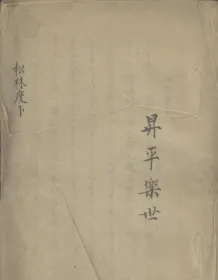 昇平樂世
松林度卜